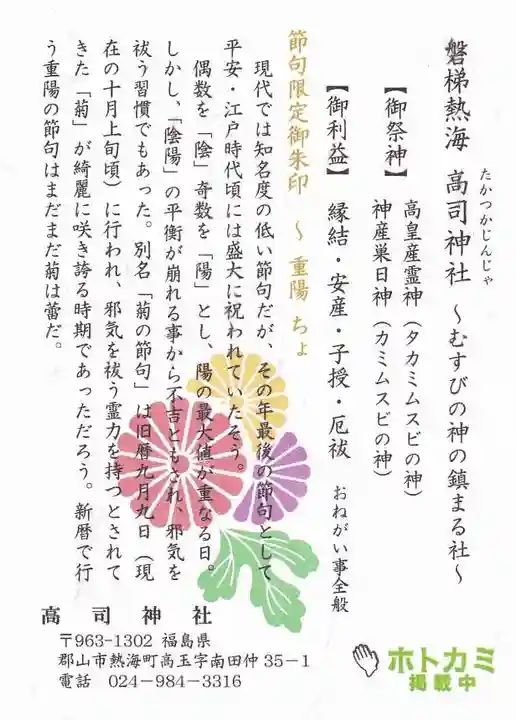 磐梯熱海 高司神社 ～むすびの神の鎮まる社～
たかつかじんじゃ
【御祭神】 高皇産霊神（タカミムスビの神）
神産巣日神（カミムスビの神）
【御利益】 縁結・安産・子授・厄祓 おねがい事全般
節句限定御朱印 ～ 重陽 ちょ
現代では知名度の低い節句だが、その年最後の節句として
平安・江戸時代頃には盛大に祝われていたそう。
偶数を「陰」奇数を「陽」とし、陽の最大値が重なる日。
しかし、「陰陽」の平衡が崩れる事から不吉ともされ、邪気を
祓う習慣でもあった。別名「菊の節句」は旧暦九月九日（現
在の十月上旬頃）に行われ、邪気を祓う霊力を持つとされて
きた「菊」が綺麗に咲き誇る時期であっただろう。新暦で行
う重陽の節句はまだまだ菊は蕾だ。
高司神社
〒963-1302 福島県
郡山市熱海町高玉字南田仲35－1
電話 024-984-3316
ホトカミ
掲載中